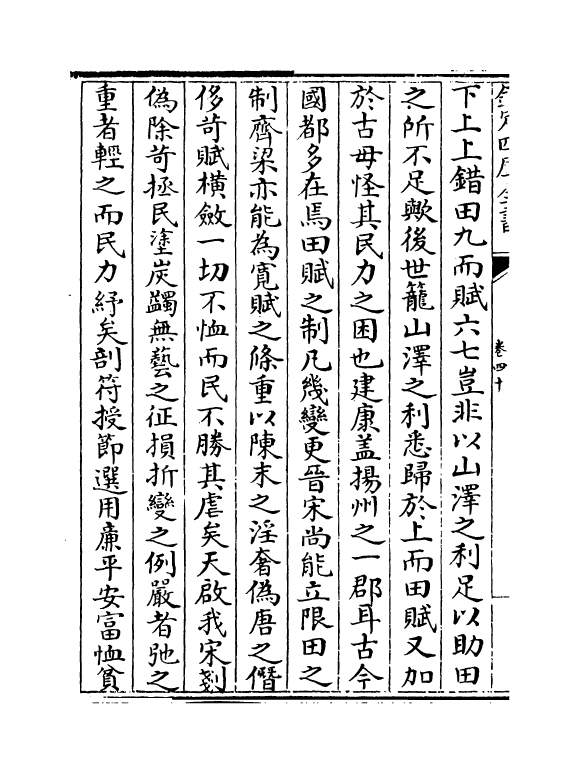 欽定四庫全書
卷四十
下上上錯田九而賦六七豈非以山澤之利足以助田
之所不足歟後世籠山澤之利悉歸於上而田賦又加
於古毋怪其民力之困也建康盖揚州之一郡耳古今
國都多在焉田賦之制凡幾變更晉宋尚能立限田之
制齊梁亦能為寛賦之條重以陳末之淫奢偽唐之僭
侈苛賦橫斂一切不恤而民不勝其虐矣天啟我宋剗
偽除苛拯民塗炭蠲無藝之征損折變之例嚴者弛之
重者輕之而民力紓矣剖符授節選用亷平安富恤貧